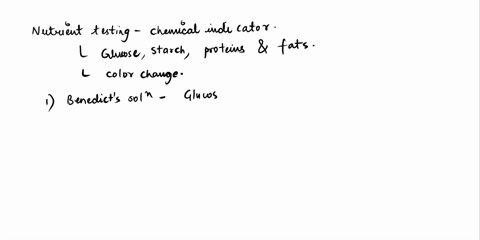 Nutrient testing - chemical indicator.
L Glucose, starch, proteins & fats.
L color change.
1) Benedict's solⁿ - Glucos